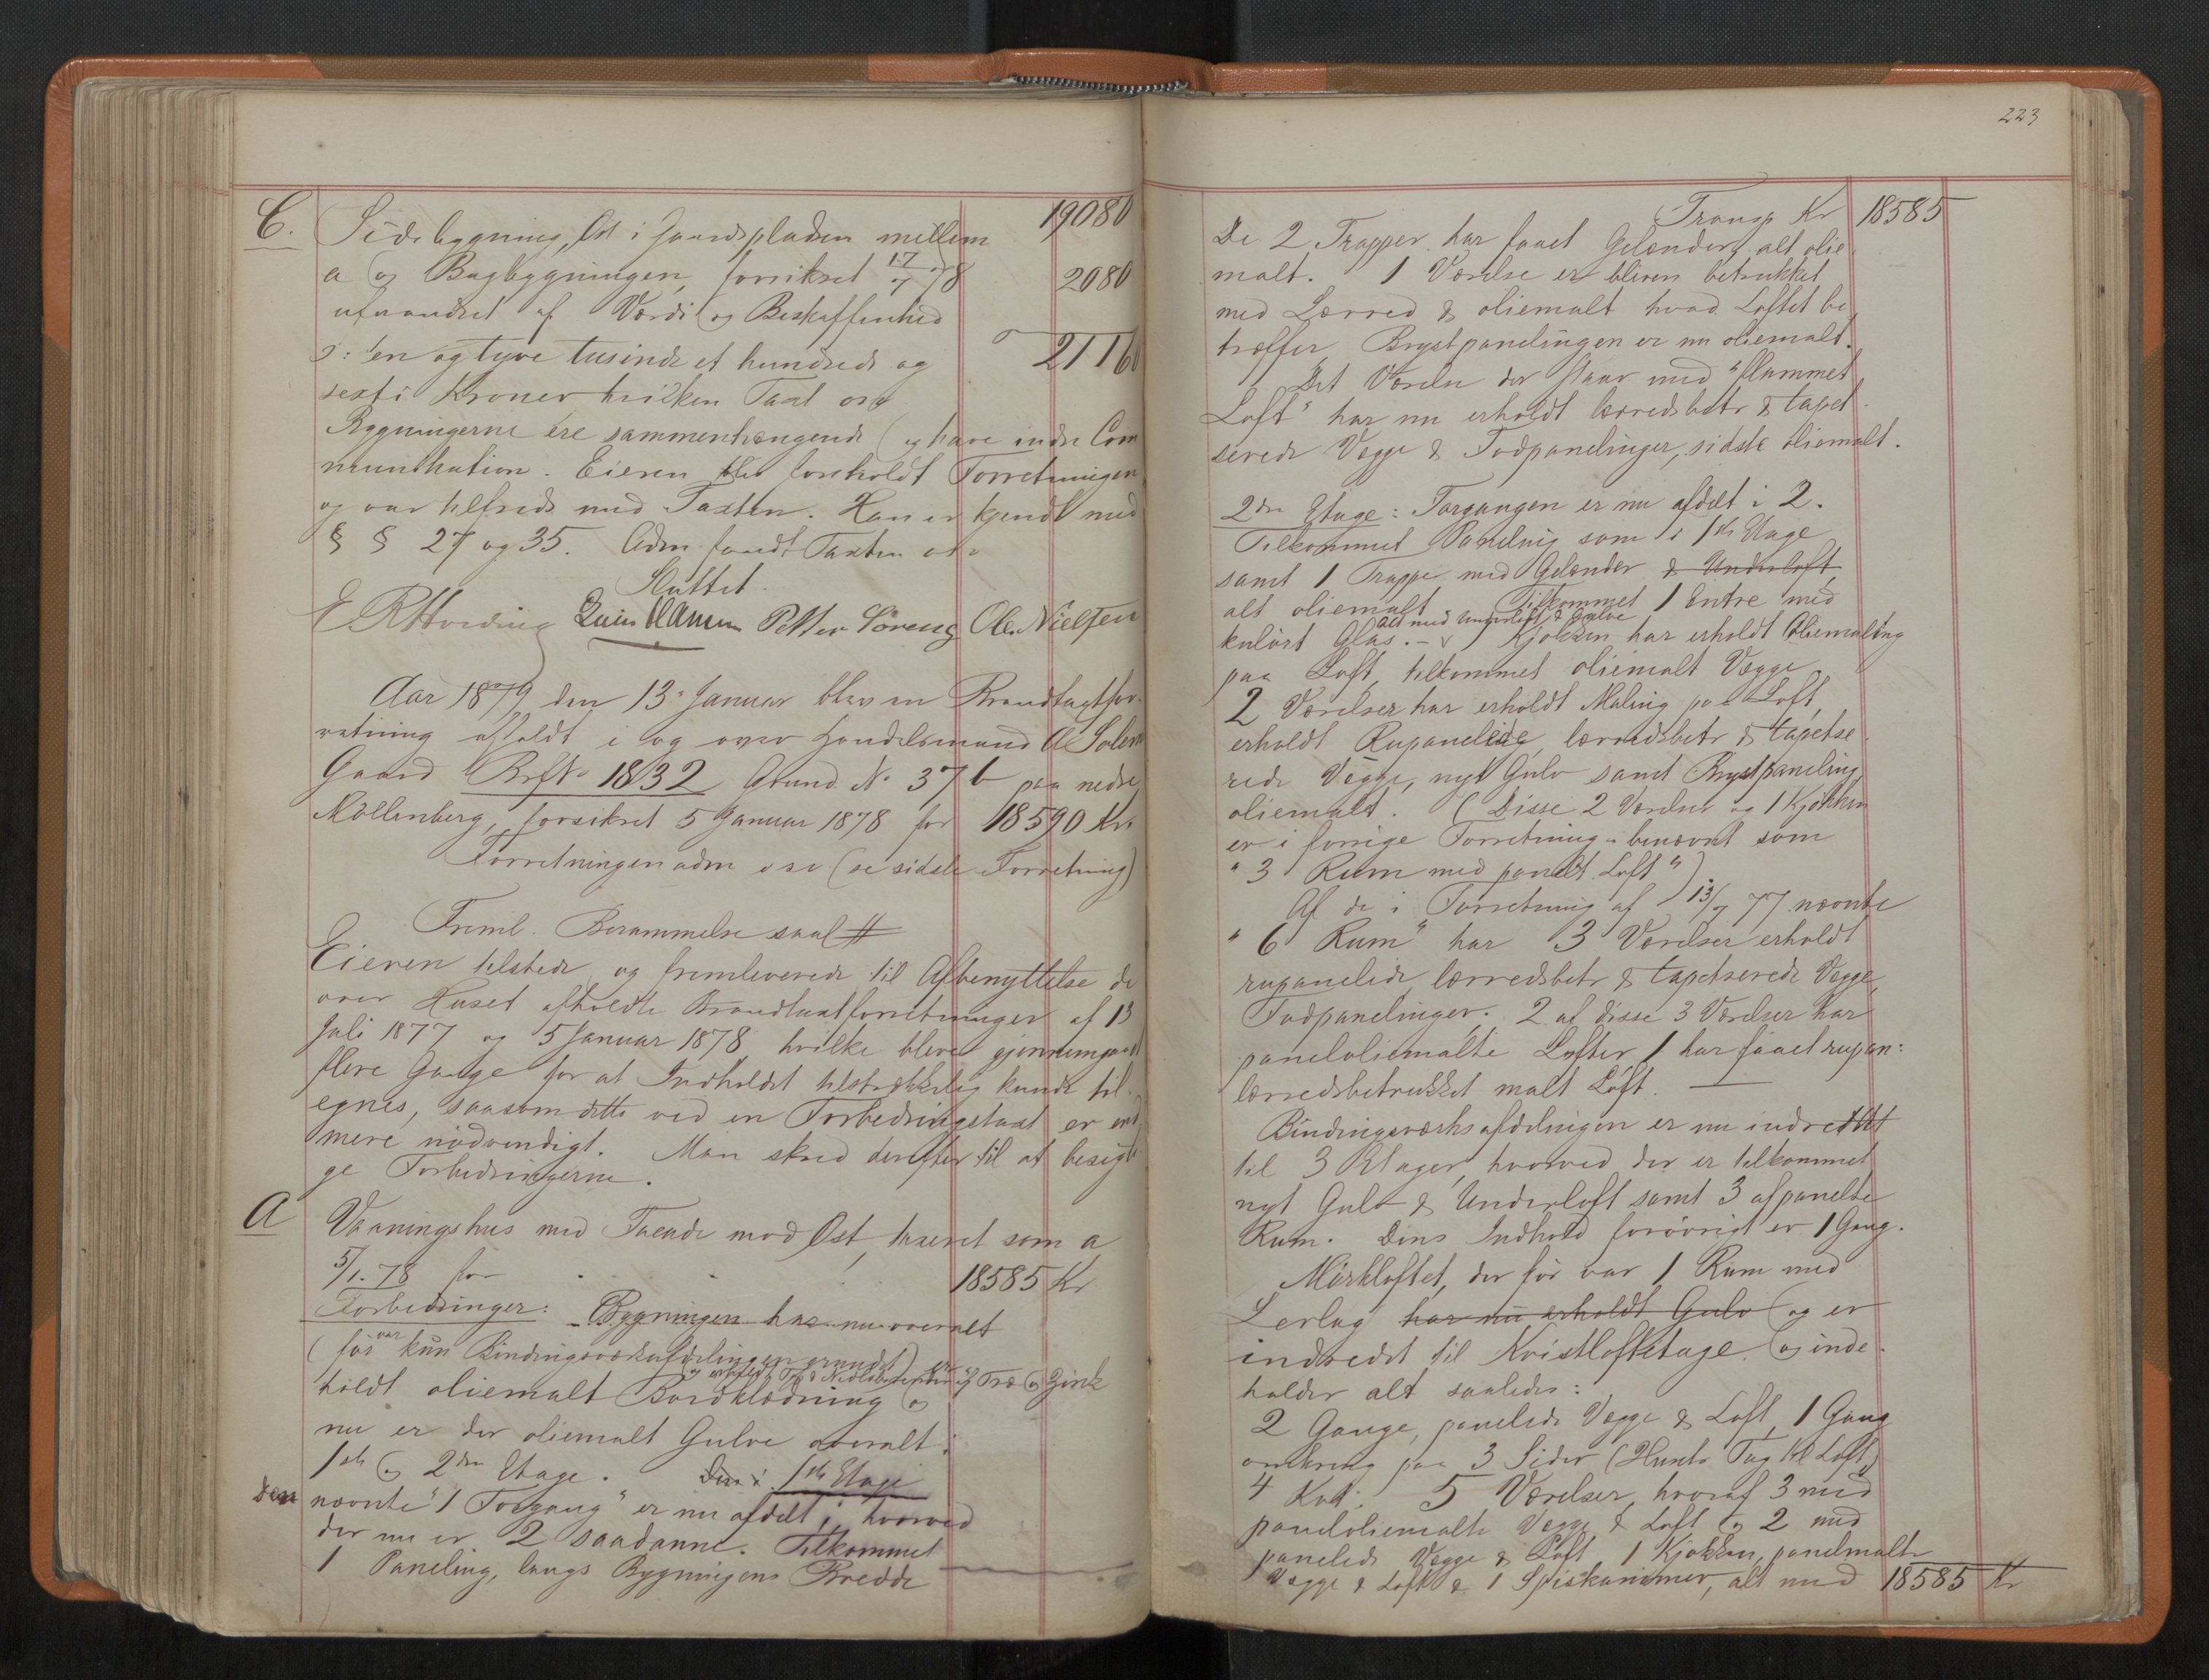 19080
C. Sidebygning, Øst i Gaardspladsen mellem
a og Bagbygningen, forsikret 17/7 78 2080
uforandret af Værdi og Beskaffenhed
o: en og tyve tusinde et hundrede og 21160
sexti Kroner hvilken Taxt osv
Bygningerne ere sammenhængende og have indre Com
munikation. Eieren blev foreholdt Forretningen
og var tilfreds med Taxten. Han er kjendt med
§ § 27 og 35. Adm. fandt Taxten osv
Sluttet.
Petter Soreng Ole Nielsen
Aar 1879 den 13de Januar blev en Brandtaxtfor-
retning afholdt i og over Handelsmand A Solem
Gaard Brf No 1832 Grund No 37 b paa nedre
Møllenberg, forsikret 5 Januar 1878 for 18590 Kr.
Forretningen adm osv (se sidste Forretning)
Freml. Berammelse saal #
Eieren tilstede og fremleverede til Afbenyttelse de
over Huset afholdte Brandtaxtforretninger af 13
Juli 1877 og 5 Januar 1878 hvilke bleve gjennemgaaet
flere Gange for at Indholdet tilstrækkelig kunde til-
egnes, saasom dette ved en Forbedringstaxt er end
mere nødvendigt. Man skred derefter til at besigti
ge Forbedringerne.
A Vaaningshus med Facade mod Øst, taxeret som a
5/1. 78 for 18585 Kr
Forbedringer: Bygningen har nu overalt
(før var kun Bindingsværksafdelingen ) er
holdt oliemalt Bordklædning og og Træ og Zink
nu er der oliemalt Gulve overalt i
1ste og 2den Etage. Den i 1ste Etage
den nævnte "1 Forgang" er nu afdelt, hvorved
der nu er 2 saadanne. Tilkommet
1 Paneling, langs Bygningens Bredde
223
Transp Kr 18585
De 2 Trapper har faaet Gelænder, alt olie-
malt. 1 Værelse er bleven betrukket
med Lærred & oliemalt hvad Loftet be
træffer Brystpanelingen er nu oliemalt.
Det Værelse der staar med "flammet
Loft" har nu erholdt lærredsbetr & tapet-
serede Vægge & Fodpanelinger, sidste oliemalt.
2den Etage: Forgangen er nu afdelt i 2.
Tilkommet Paneling som i 1ste Etage
samt 1 Trappe med Gelænder & Underloft,
alt oliemalt Tilkommet 1 Entre med
alt med Underloft & Gulve
kulørt Glas. - v 1 Kjøkken har erholdt Oliemaling
paa Loft, tilkommet oliemalt Vægge.
2 Værelser har erholdt Maling paa Loft,
erholdt Rupanelede, lærredsbetr & tapetse
rede Vægge, nyt Gulv samt Brystpaneling
oliemalt. (Disse 2 Værelser og 1 Kjøkken
er i forrige Forretning benævnt som
"3 Rum med panelt Loft").
Af de i Forretning af 13/7 77 nævnte
"6 Rum" har 3 Værelser erholdt
rupanelede lærredsbetr & tapetserede Vægge,
Fodpanelinger. 2 af disse 3 Værelser har
paneloliemalte Lofter 1 har faaet rupan:
lærredsbetrukket malt Loft.
Bindingsværksafdelingen er nu indrettet
til 3 Etager, hvorved der er tilkommet
nyt Gulv & Underloft samt 3 afpanelte
Rum. Dens Indhold forøvrigt er 1 Gang.
Mørkloftet, der før var 1 Rum med
Lerlag har nu erholdt Gulv og er
indredet til Kvistloftetage og inde-
holder alt saaledes:
2 Gange, panelede Vægge & Loft, 1 Gang
omkring paa 3 Sider (Hunts Tag til Loft,)
4 5 Værelser, hvoraf 3 med
paneloliemalte Vægge & Loft og 2 med
panelede Vægge & Loft 1 Kjøkken, panelmalte
Vægge & Loft & 1 Spiskammer, alt med 18585 Kr